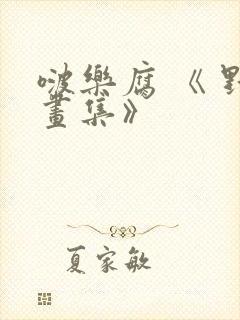 啵樂腐《
畫集》
夏家敏